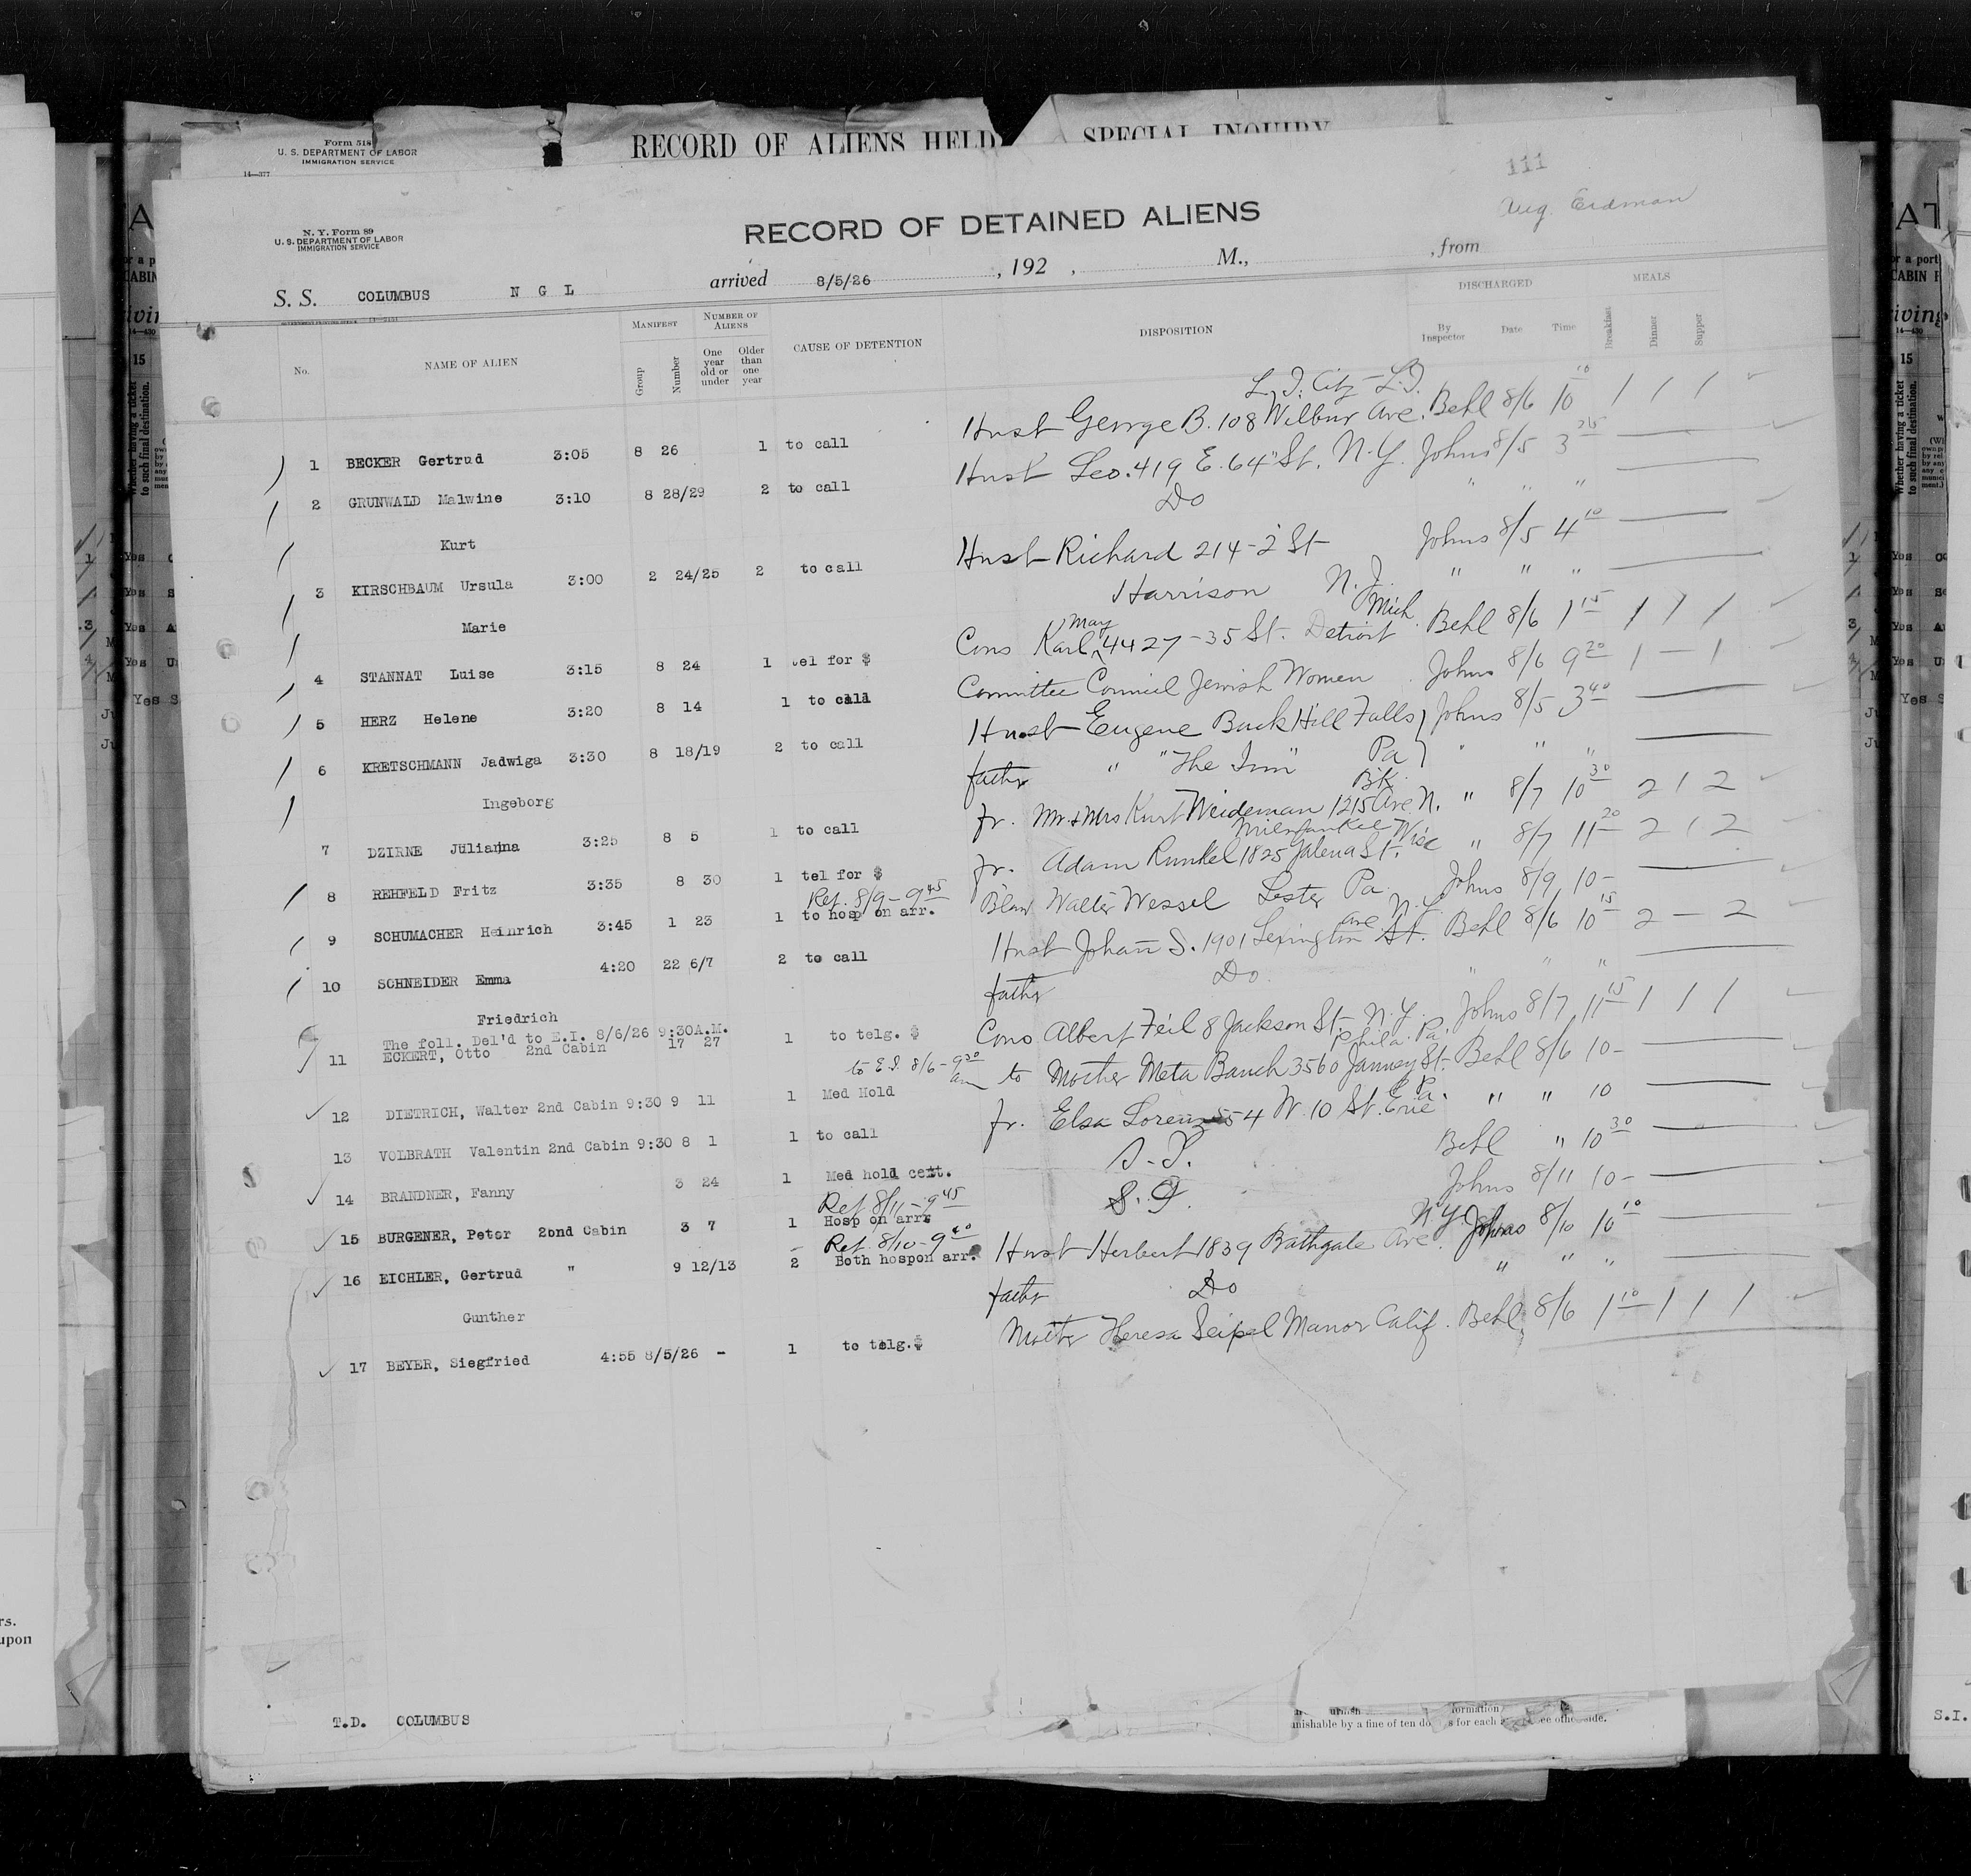 Form 518
U. S. DEPARTMENT OF LABOR
IMMIGRATION SERVICE
14—377
RECORD OF ALIENS HELD SPECIAL INQUIRY
111
Aug. Erdman
N. Y. Form 89
U. S. DEPARTMENT OF LABOR
IMMIGRATION SERVICE
RECORD OF DETAINED ALIENS
S. S. COLUMBUS N G L arrived 8/5/26 , 192 , M., , from
No. NAME OF ALIEN MANIFEST Group Number NUMBER OF ALIENS One year old or under Older than one year CAUSE OF DETENTION DISPOSITION DISCHARGED By Inspector Date Time MEALS Breakfast Dinner Supper
L. I. City - L.I.
1 BECKER Gertrud 3:05 8 26 1 to call Husb George B. 108 Wilbur Ave. Behl 8/6 10 10 1 1 1
2 GRUNWALD Malwine 3:10 8 28/29 2 to call Husb Leo. 419 E. 64" St. N.Y. Johns 8/5 3 25
Kurt Do " " "
3 KIRSCHBAUM Ursula 3:00 2 24/25 2 to call Husb Richard 214-2 St Johns 8/5 4 10
Marie Harrison N.J. " " "
4 STANNAT Luise 3:15 8 24 1 tel for $ Cons Karl May 4427-35 St. Detroit Mich. Behl 8/6 1 15 1 1 1
5 HERZ Helene 3:20 8 14 1 to call Committee Council Jewish Women Johns 8/6 9 20 1 — 1
6 KRETSCHMANN Jadwiga 3:30 8 18/19 2 to call Husb Eugene Buck Hill Falls Johns 8/5 3 40
Ingeborg father " "The Inn" Pa " " "
7 DZIRNE Julianna 3:25 8 5 1 to call fr. Mr. & Mrs Kurt Weideman 1215 Ave N. BK. " 8/7 10 30 2 1 2
8 REHFELD Fritz 3:35 8 30 1 tel for $ fr. Adam Runkel 1825 Galena St. Wisc " 8/7 11 20 2 1 2
Ret. 8/9 - 9 45
9 SCHUMACHER Heinrich 3:45 1 23 1 to hosp on arr. Walter Wessel Lester Pa. Johns 8/9 10 -
10 SCHNEIDER Emma 4:20 22 6/7 2 to call Husb Johann S. 1901 Lexington Ave St. N.Y. Behl 8/6 10 15 2 — 2
Friedrich father Do. " " "
The foll. Del'd to E.I. 8/6/26 9:30A.M.
11 ECKERT, Otto 2nd Cabin 17 27 1 to telg. $ Cons Albert Feil 8 Jackson St. N.Y. Johns 8/7 11 15 1 1 1
to E.I. 8/6 - 9 30 am
12 DIETRICH, Walter 2nd Cabin 9:30 9 11 1 Med Hold to Mother Meta Bauch 3560 Janney St. Phila. Pa. Behl 8/6 10 -
13 VOLBRATH Valentin 2nd Cabin 9:30 8 1 1 to call fr. Elsa Lorenz 554 W. 10 St. Erie Pa. " " 10
14 BRANDNER, Fanny 3 24 1 Med hold cert. S.I. Behl " 10 30
Ret 8/11 - 9 45
15 BURGENER, Peter 2ond Cabin 3 7 1 Hosp on arrr S.I. Johns 8/11 10 -
Ret. 8/10 - 9 40
16 EICHLER, Gertrud " 9 12/13 2 Both hospon arr. Husb Herbert 1839 Bathgate Ave. N.Y. Johns 8/10 10 10
Gunther father Do " " "
17 BEYER, Siegfried 4:55 8/5/26 - 1 to telg.$ Mother Theresa Seipel Manor Calif. Behl 8/6 1 10 1 1 1
T.D. COLUMBUS
ormation
nishable by a fine of ten do s for each ee other side.
rs.
upon
S.I.